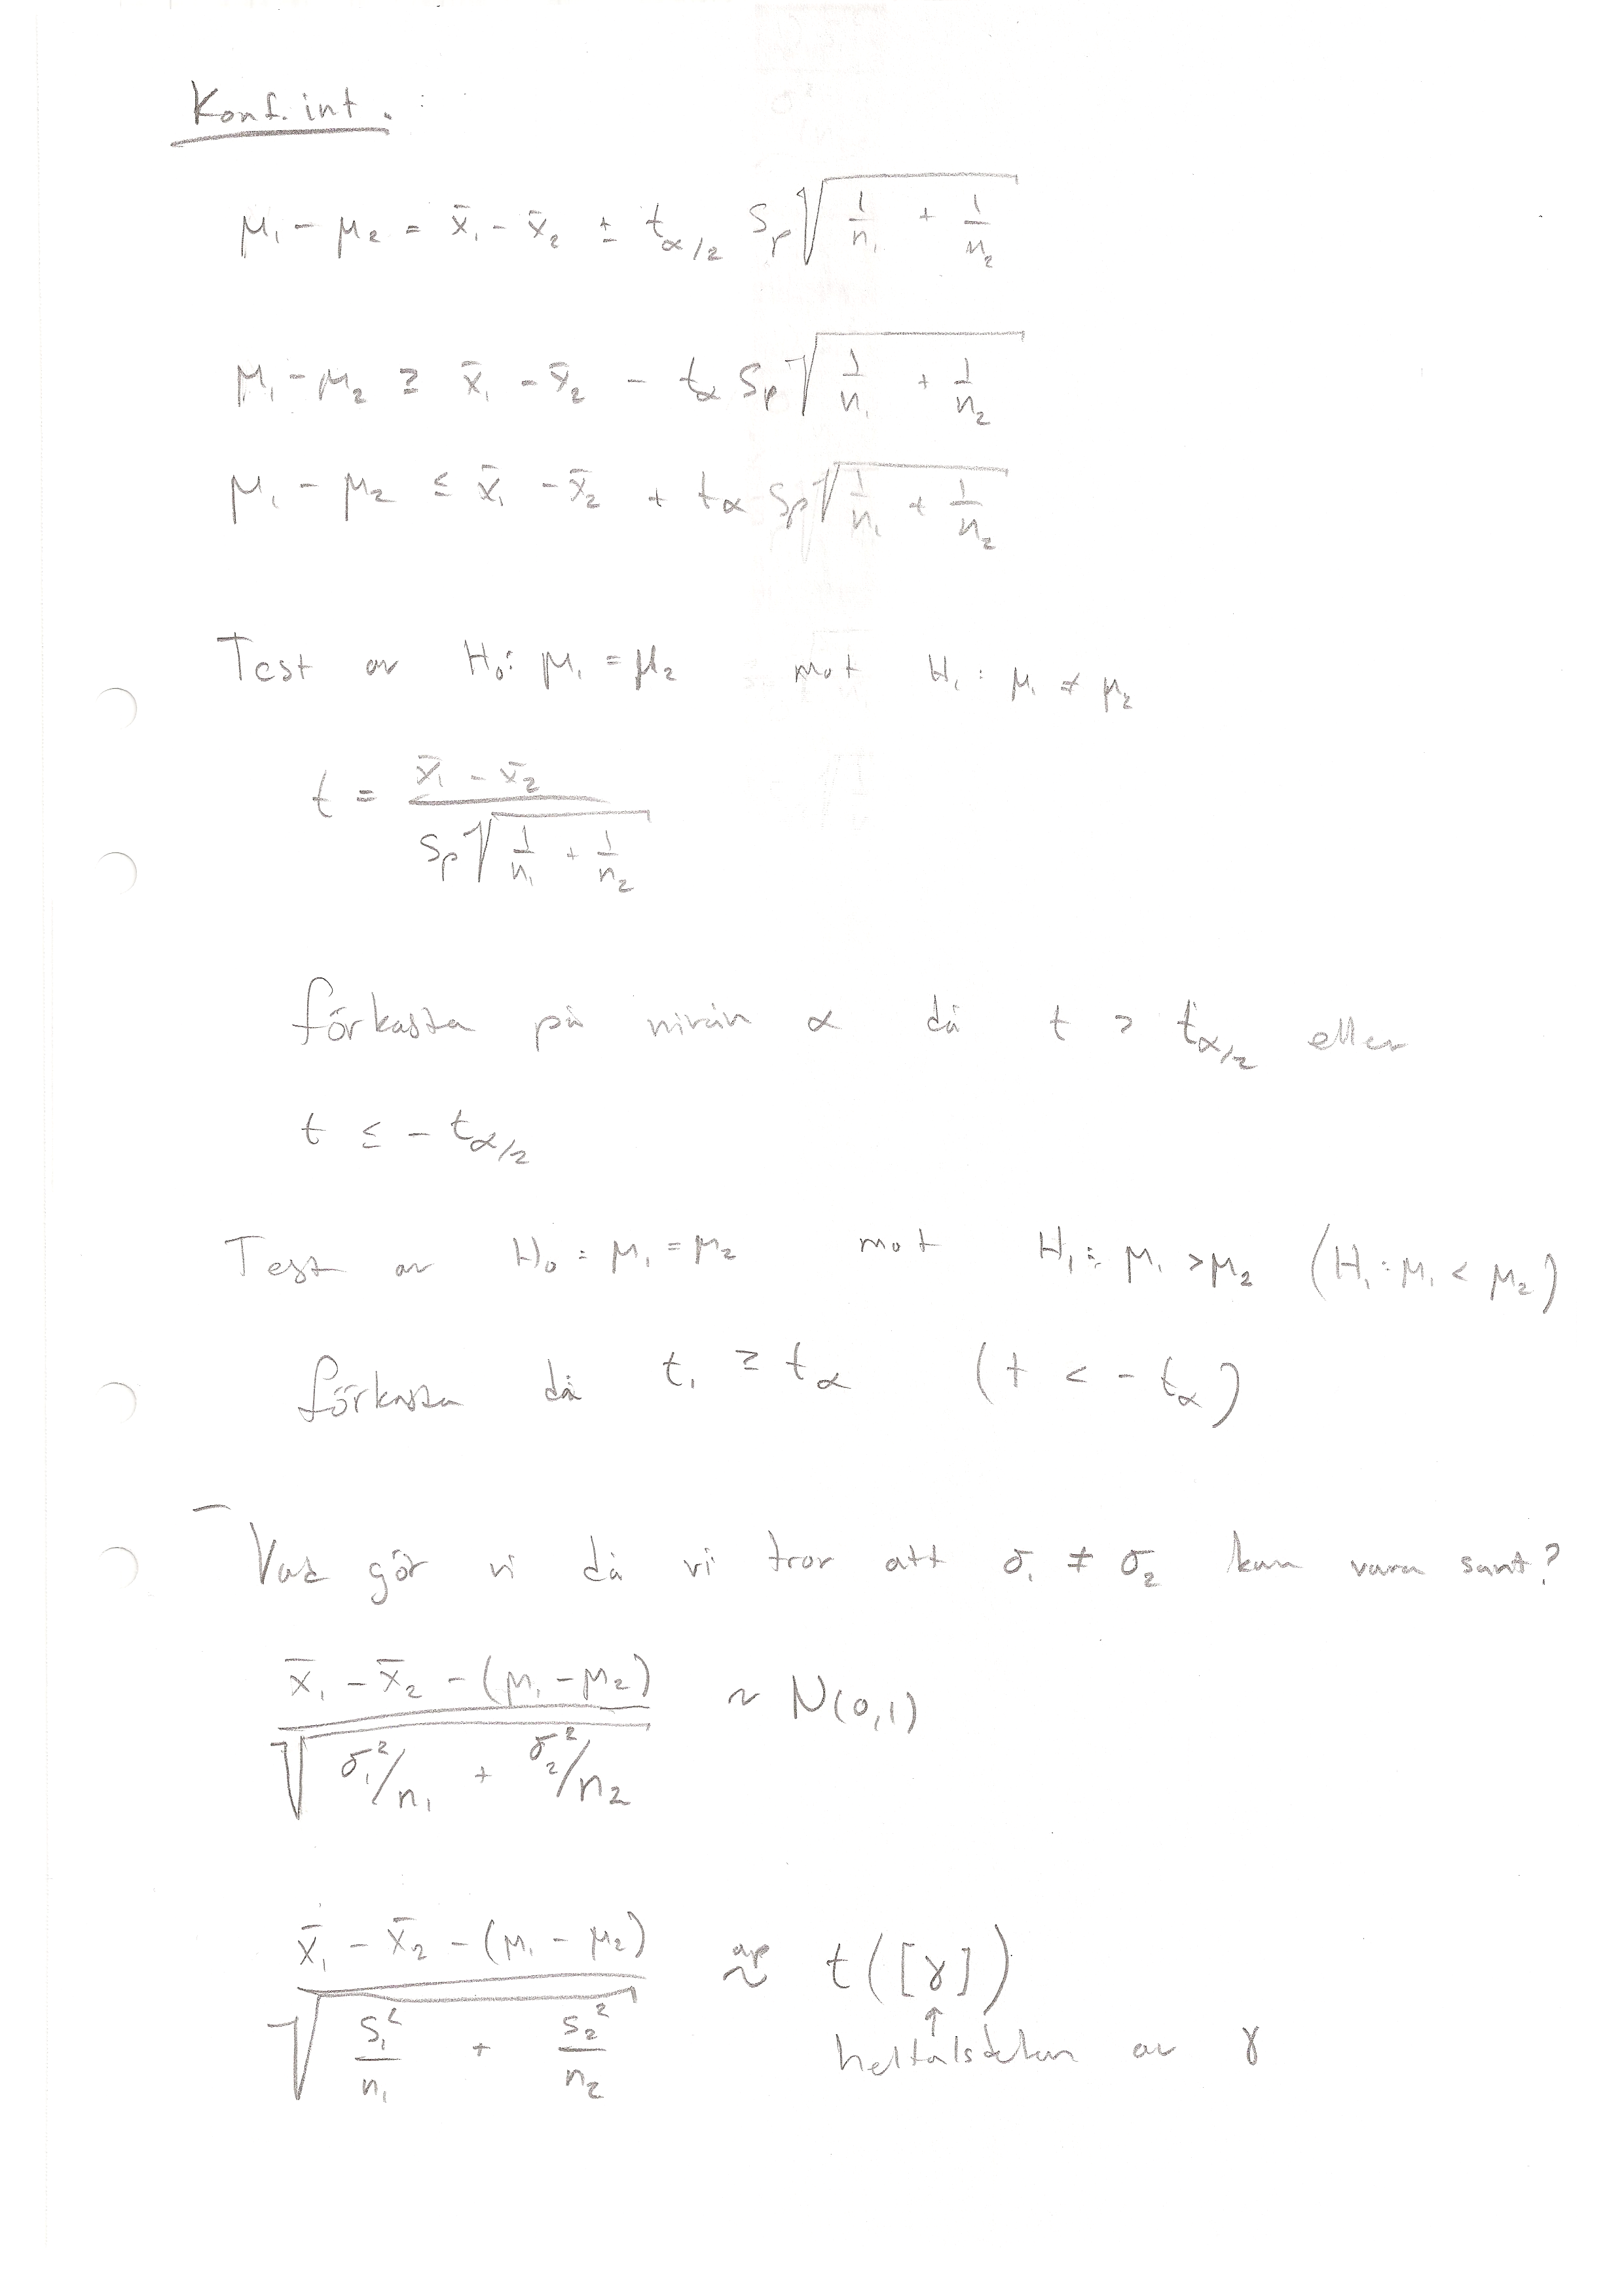 Konf.int.:
μ₁ - μ₂ = x̄₁ - x̄₂ ± t_{α/2} S_p √(1/n₁ + 1/n₂)
μ₁ - μ₂ ≥ x̄₁ - x̄₂ - t_α S_p √(1/n₁ + 1/n₂)
μ₁ - μ₂ ≤ x̄₁ - x̄₂ + t_α S_p √(1/n₁ + 1/n₂)
Test av H₀: μ₁ = μ₂ mot H₁: μ₁ ≠ μ₂
t = (x̄₁ - x̄₂) / (S_p √(1/n₁ + 1/n₂))
förkasta på nivån α då t > t_{α/2} eller
t ≤ - t_{α/2}
Test av H₀: μ₁ = μ₂ mot H₁: μ₁ > μ₂ (H₁: μ₁ < μ₂)
förkasta då t₁ ≥ t_α (t < - t_α)
- Vad gör vi då vi tror att σ₁ ≠ σ₂ kan vara sant?
(x̄₁ - x̄₂ - (μ₁ - μ₂)) / √(σ₁²/n₁ + σ₂²/n₂) ~ N(0,1)
(x̄₁ - x̄₂ - (μ₁ - μ₂)) / √(S₁²/n₁ + S₂²/n₂) ap ≈ t([γ])
↑
heltalsdelen av γ